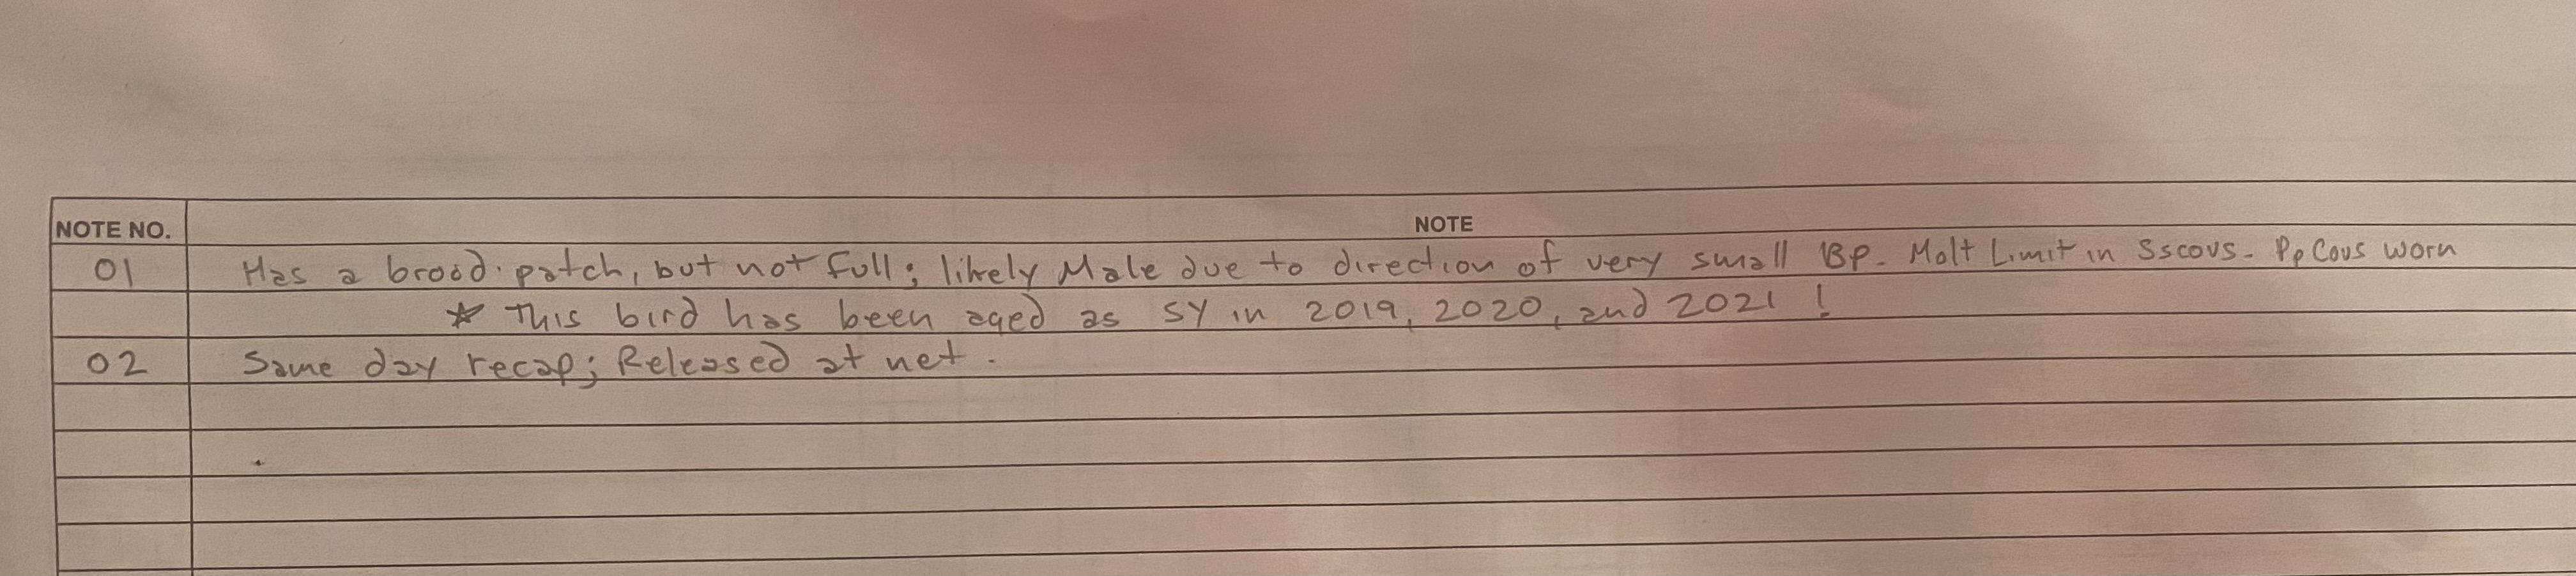 NOTE NO. NOTE
01 Has a brood patch, but not full; likely Male due to direction of very small BP. Molt Limit in Sscovs. PpCovs worn
* This bird has been aged as SY in 2019, 2020, and 2021 !
02 Same day recap; Released at net.